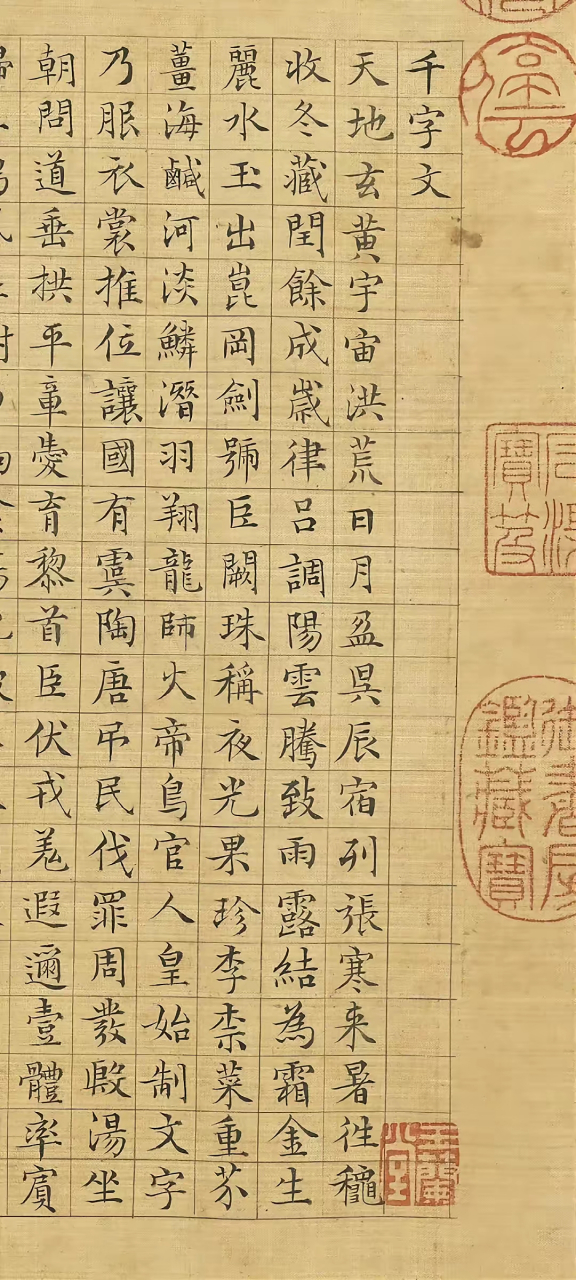 千字文
天地玄黄宇宙洪荒日月盈昃辰宿列張寒来暑往穐
收冬藏閏餘成歳律吕調陽雲騰致雨露結為霜金生
麗水玉出崑岡劍號臣闕珠稱夜光果珍李柰菜重芥
薑海鹹河淡鱗潛羽翔龍師火帝鳥官人皇始制文字
乃服衣裳推位讓國有虞陶唐弔民伐罪周發殷湯坐
朝問道垂拱平章愛育黎首臣伏戎羌遐邇壹體率賓
石渠
寶笈
御書房
鑑藏寶